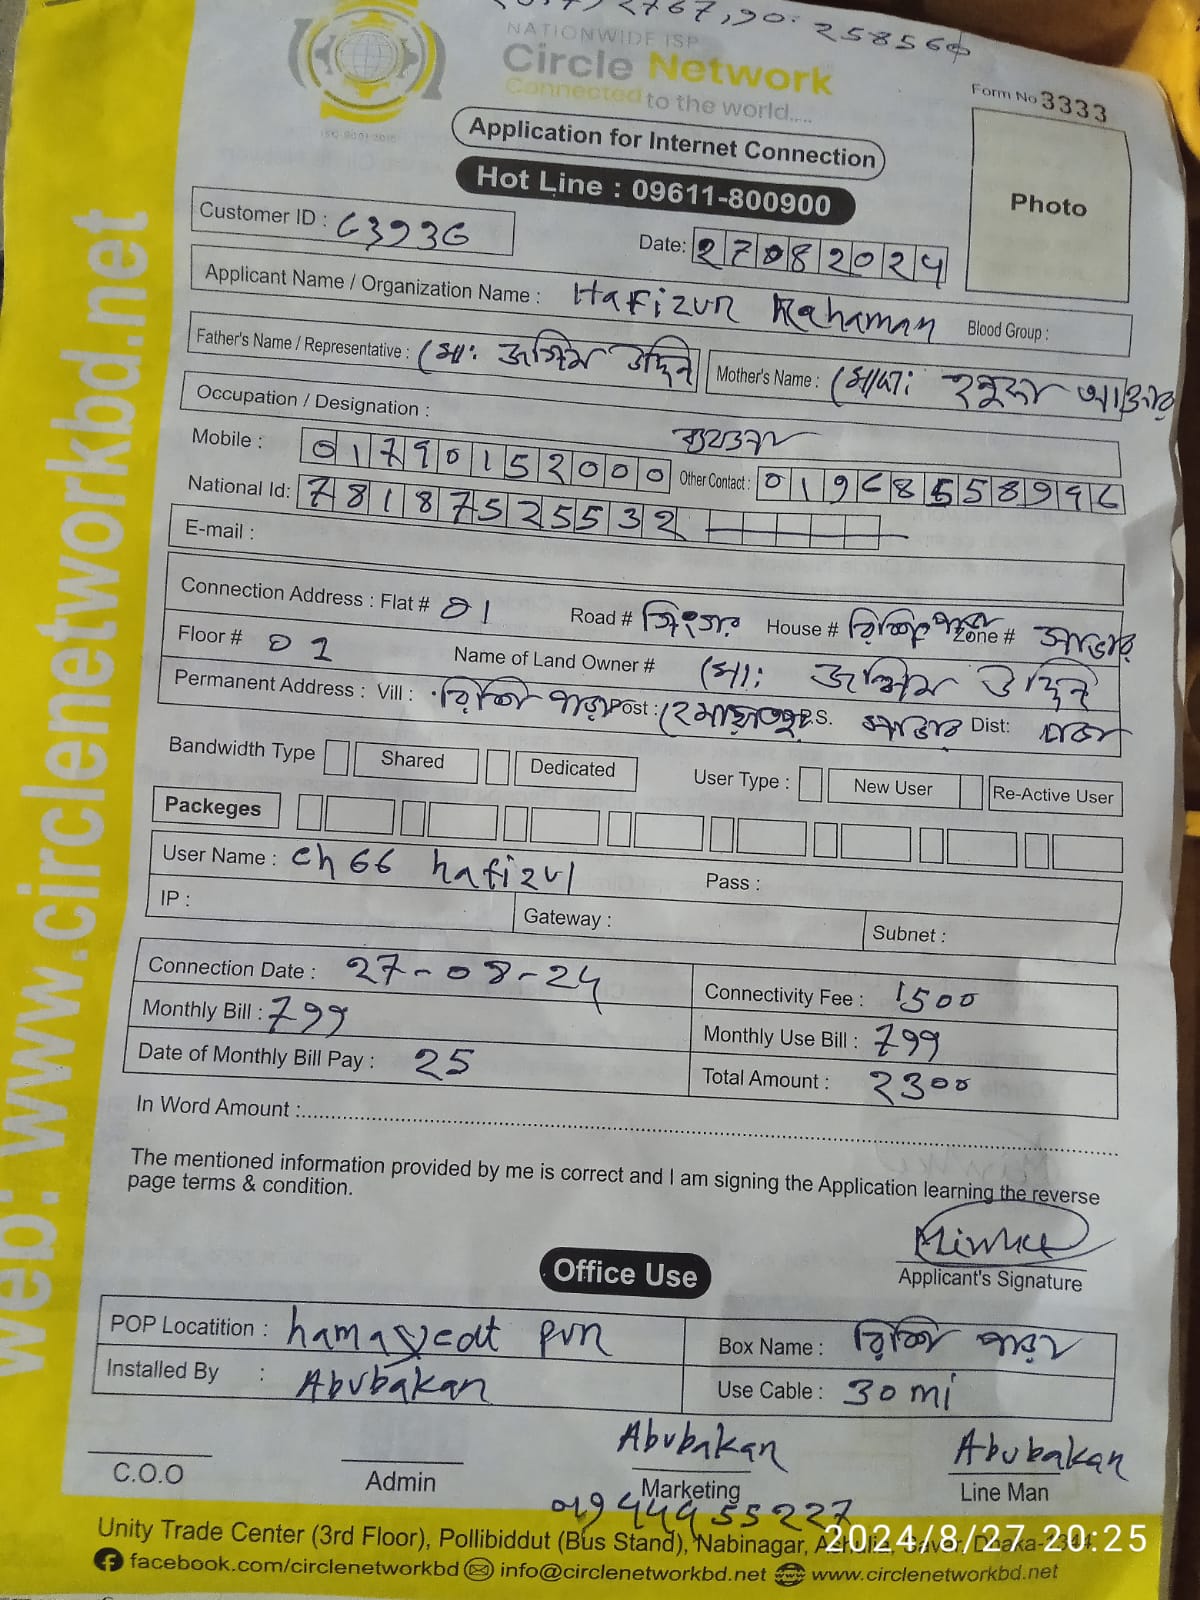 2767,90: 258560
NATIONWIDE ISP
Circle Network
Connected to the world.....
Form No 3333
Application for Internet Connection
Hot Line : 09611-800900
Photo
Customer ID : G3936
Date: 27082024
Applicant Name / Organization Name : Hafizur Rahaman Blood Group :
Father's Name / Representative : মো: জসিম উদ্দিন Mother's Name :
Occupation / Designation :
Mobile : 01790152000 Other Contact : 01968558996
National Id: 7818752553 2
E-mail :
Connection Address : Flat # 01 Road # House # রিশিপাড়া Zone # সাভার
Floor # 01 Name of Land Owner # মো: জসিম উদ্দিন
Permanent Address : Vill : রিশি পাড়া Post : হেমায়েতপুর P.S. সাভার Dist: ঢাকা
Bandwidth Type Shared Dedicated User Type : New User Re-Active User
Packeges
User Name : ch66 hafizul Pass :
IP : Gateway : Subnet :
Connection Date : 27-08-24 Connectivity Fee : 1500
Monthly Bill : 799 Monthly Use Bill : 799
Date of Monthly Bill Pay : 25 Total Amount : 2300
In Word Amount :
The mentioned information provided by me is correct and I am signing the Application learning the reverse
page terms & condition.
Applicant's Signature
Office Use
POP Locatition : hamayedt pur Box Name : রিশি পাড়া
Installed By : Abubakar Use Cable : 30 mi
Abubakar Abubakar
C.O.O Admin Marketing Line Man
01944955227
Unity Trade Center (3rd Floor), Pollibiddut (Bus Stand), Nabinagar, Ashulia, Savar, Dhaka-1344.
2024/8/27 20:25
facebook.com/circlenetworkbd info@circlenetworkbd.net www.circlenetworkbd.net
web: www.circlenetworkbd.net